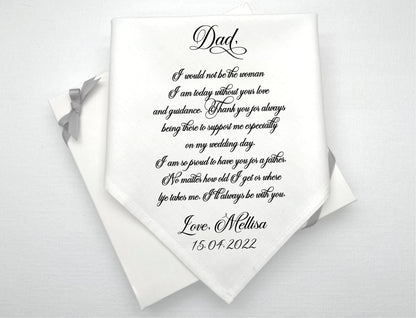 Dad,
I would not be the woman
I am today without your love
and guidance. Thank you for always
being there to support me especially
on my wedding day.
I am so proud to have you for a father.
No matter how old I get or where
life takes me, I'll always be with you.
Love, Mellisa
15.04.2022